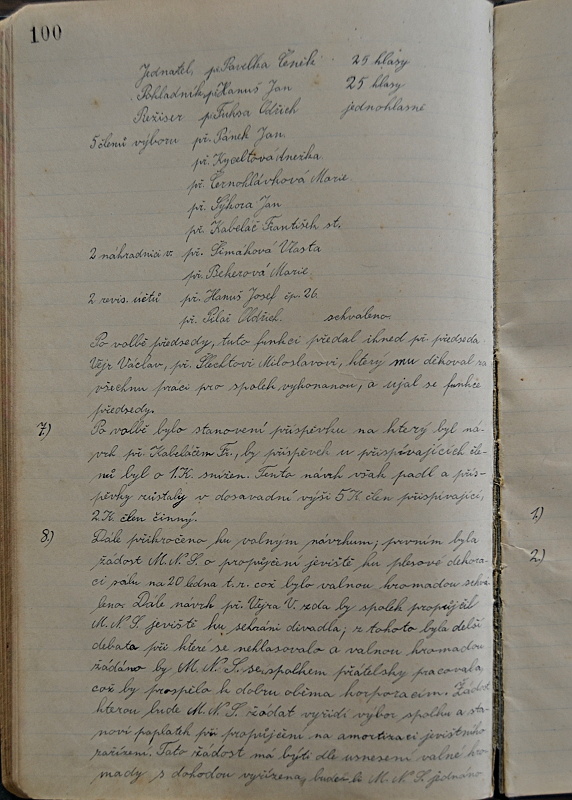 100
Jednatel, p. Pavelka Čeněk 25 hlasy
Pokladník, p. Hanuš Jan 25 hlasy
Režiser p. Fuksa Oldřich jednohlasně
5 členů výboru př. Pánek Jan
př. Kyceltová Anežka
př. Černohlávková Marie
př. Sýkora Jan
př. Kabeláč František st.
2 náhradníci v. př. Šimáková Vlasta
př. Bekerová Marie
2 revis. účtů př. Hanuš Josef čp. 26.
př. Pilář Oldřich. schváleno.
Po volbě předsedy, tuto funkci předal ihned př. předseda
Vejr Václav, př. Šlechtovi Miloslavovi, který mu děkoval za
všechnu práci pro spolek vykonanou, a ujal se funkce
předsedy.
7.) Po volbě bylo stanovení příspěvku na který byl ná-
vrh př. Kabeláčem Fr., by příspěvek u přispívajících čle-
nů byl o 1 K. snížen. Tento návrh však padl a přís-
pěvky zůstaly v dosavadní výši 5 K. člen přispívající,
2. K. člen činný.
8.) Dále přikročeno ku valným návrhům; prvním byla
žádost M.N.S. o propůjčení jeviště ku plesové dekora-
ci sálu na 20 ledna t.r. což bylo valnou hromadou schvá-
leno. Dále návrh př. Vejra V. zda by spolek propůjčil
M.N.S. jeviště ku sehrání divadla; z tohoto byla delší
debata při které se nehlasovalo a valnou hromadou
žádáno by M.N.S. se spolkem přátelsky pracovala
což by prospělo k dobru oběma korporacím. Žádost
kterou bude M.N.S. žádat vyřídí výbor spolku a sta-
noví poplatek při propůjčení na amortizaci jevištního
zařízení. Tato žádost má býti dle usnesení valné hro-
mady s dohodou vyřízena, bude-li M.N.S. jednáno
1)
2)